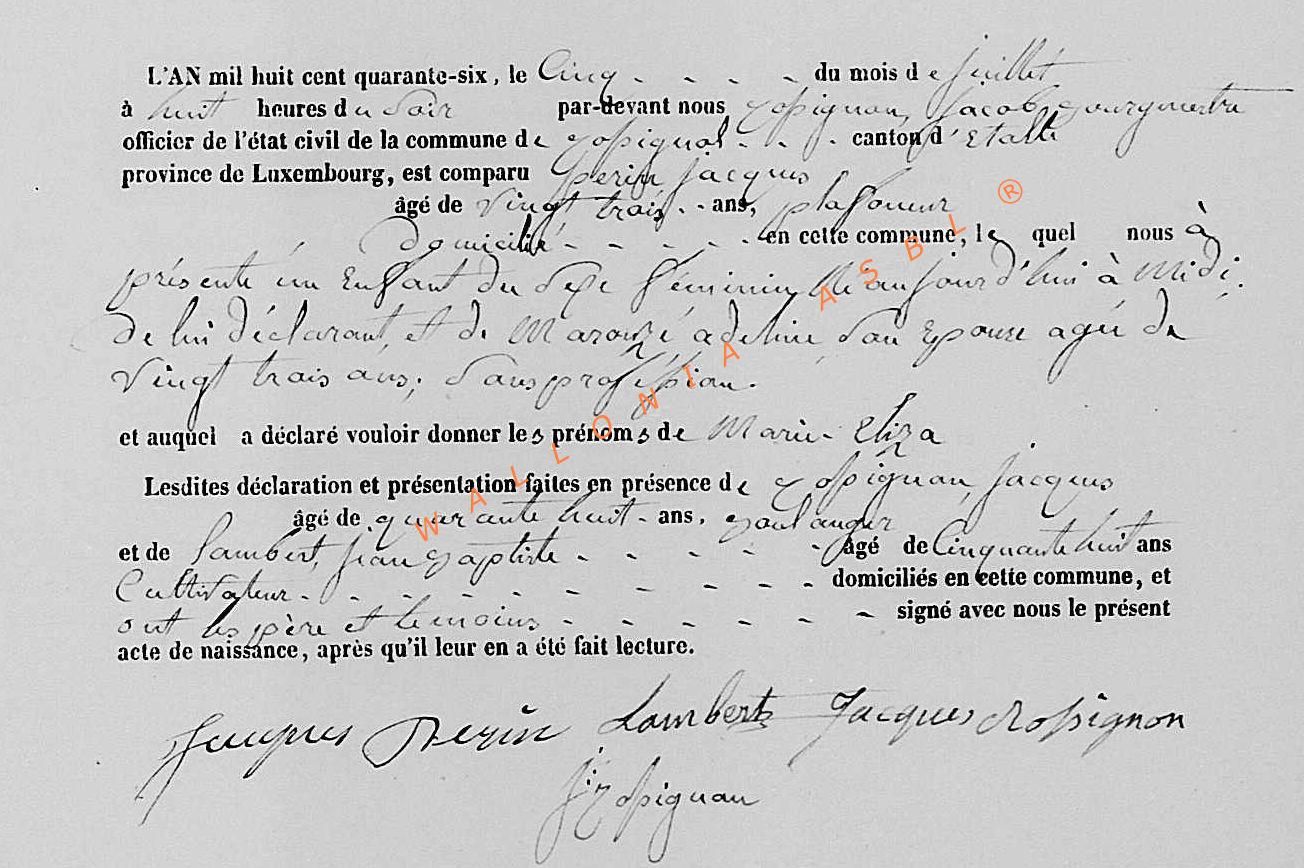 L'AN mil huit cent quarante-six, le Cinq - - - - du mois de juillet
à huit heures du Soir par-devant nous Rossignon, Jacob, Bourgmestre
officier de l'état civil de la commune de Rossignol - - - canton d'Etalle
province de Luxembourg, est comparu Perin, Jacques
âgé de vingt trois - - ans, plafoneur
Domicilié - - - - - en cette commune, lequel nous à
présenté un Enfant du Sexe féminin, Né aujourd'hui à Midi.
De lui déclarant, et de adeline, Son Epouse agée de
vingt trois ans, Sans profession.
et auquel a déclaré vouloir donner les prénoms de Marie- Eliza
Lesdites déclaration et présentation faites en présence de Rossignon, Jacques
âgé de quarante huit - ans, Boulanger
et de Lambert, Jean Baptiste - - - - - - âgé de Cinquante huit ans
Cultivateur - - - - - - - - - - domiciliés en cette commune, et
ont les père et temoins - - - - - - signé avec nous le présent
acte de naissance, après qu'il leur en a été fait lecture.
Jacques Perin Lambert Jacques Rossignon
J. Rossignon
WALLONIA ASBL ®